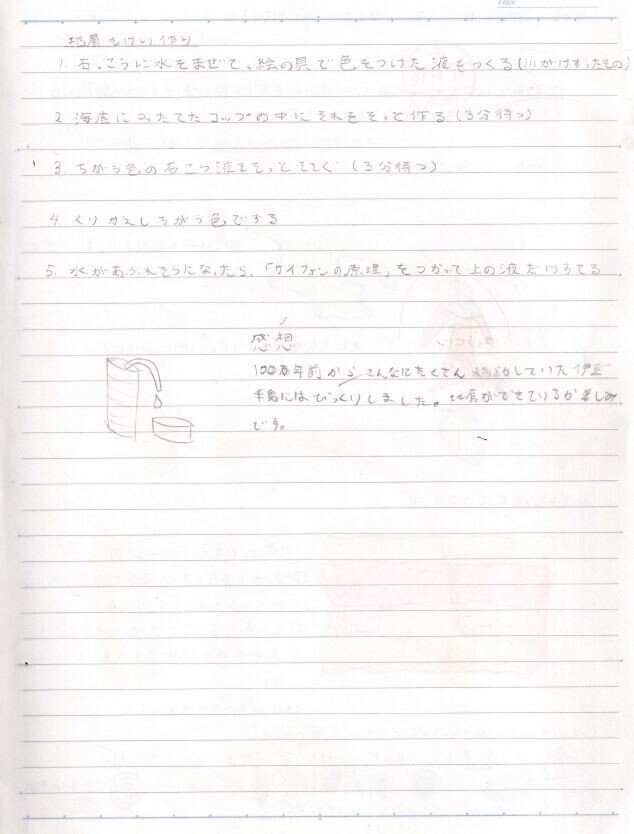 Date
地層もけい作り
1. 石こうに水をまぜて、絵の具で色をつけた液をつくる(川がけずったもの)
2. 海底にみたてたコップの中にそれをそっと作る(3分待つ)
3. ちがう色の石こう液をそっとそそぐ(3分待つ)
4. くりかえしちがう色でする
5. 水があふれそうになったら、「サイフォンの原理」をつかって上の液だけすてる
感想
100万年前からこんなにたくさん していた伊豆
半島にはびっくりしました。地層ができているか楽しみ
です。